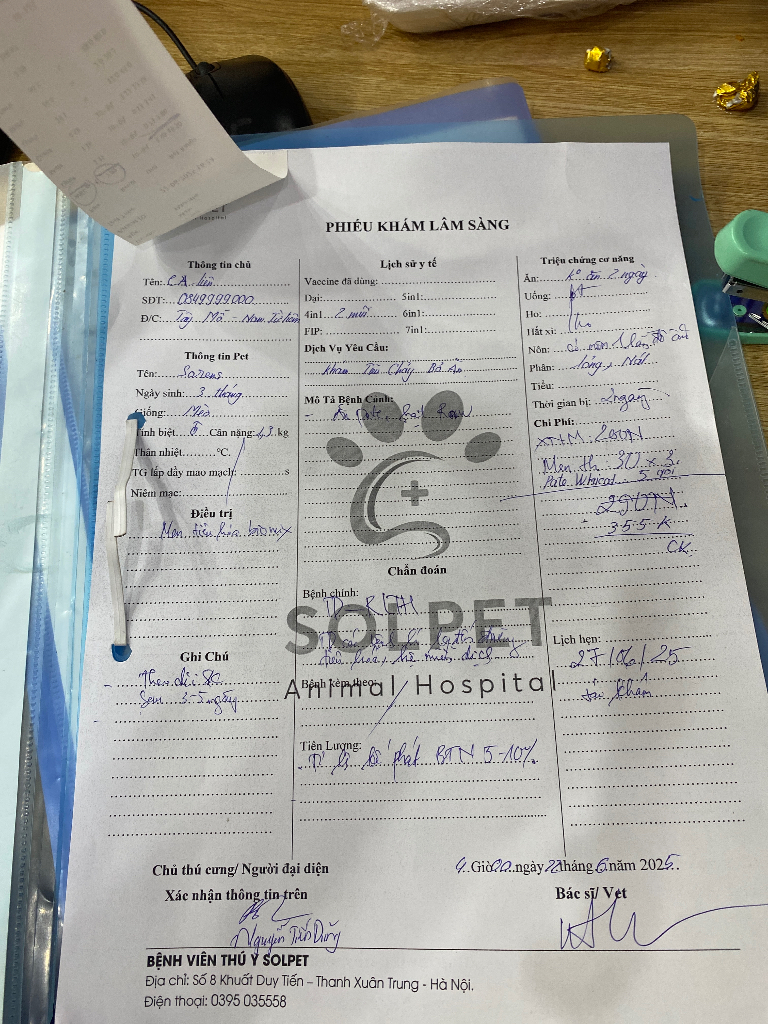 Hospital
PHIẾU KHÁM LÂM SÀNG
Thông tin chủ
Tên: C.A
SĐT: 0849999000
Đ/C: Tây Mỗ - Nam Từ Liêm
Thông tin Pet
Tên:
Ngày sinh: 3 tháng
Giống: Mèo
Tính biệt: Cân nặng: 1,3 kg
Thân nhiệt °C.
TG lấp đầy mao mạch: s
Niêm mạc:
Điều trị
Men tiêu hóa
Ghi Chú
Theo dõi SK
3-5 ngày
Lịch sử y tế
Vaccine đã dùng:
Dại: 5in1:
4in1: 2 mũi 6in1:
FIP: 7in1:
Dịch Vụ Yêu Cầu:
Khám Tiêu Chảy Bỏ Ăn
Mô Tả Bệnh Cảnh:
- Ăn Pate, hạt
Chẩn đoán
Bệnh chính:
TD RLTH
tiêu hóa, hệ miễn dịch
Bệnh kèm theo:
Tiên Lượng:
phát BTN 5-10%
Triệu chứng cơ năng
Ăn: 2 ngày
Uống:
Ho:
Hắt xì:
Nôn: có nôn 1 lần
Phân: lỏng, Nát
Tiểu:
Thời gian bị: 2 ngày
Chi Phí:
XNM 200N
Men th 30 x 3
Pate 5 gói
290N
355 K
CK
Lịch hẹn:
27/06/25
tái khám
SOLPET
Animal Hospital
Chủ thú cưng/ Người đại diện
Xác nhận thông tin trên
Nguyễn Tiến Dũng
9 Giờ 20 ngày 22 tháng 6 năm 2025
Bác sĩ/ Vet
BỆNH VIỆN THÚ Y SOLPET
Địa chỉ: Số 8 Khuất Duy Tiến – Thanh Xuân Trung - Hà Nội.
Điện thoại: 0395 035558